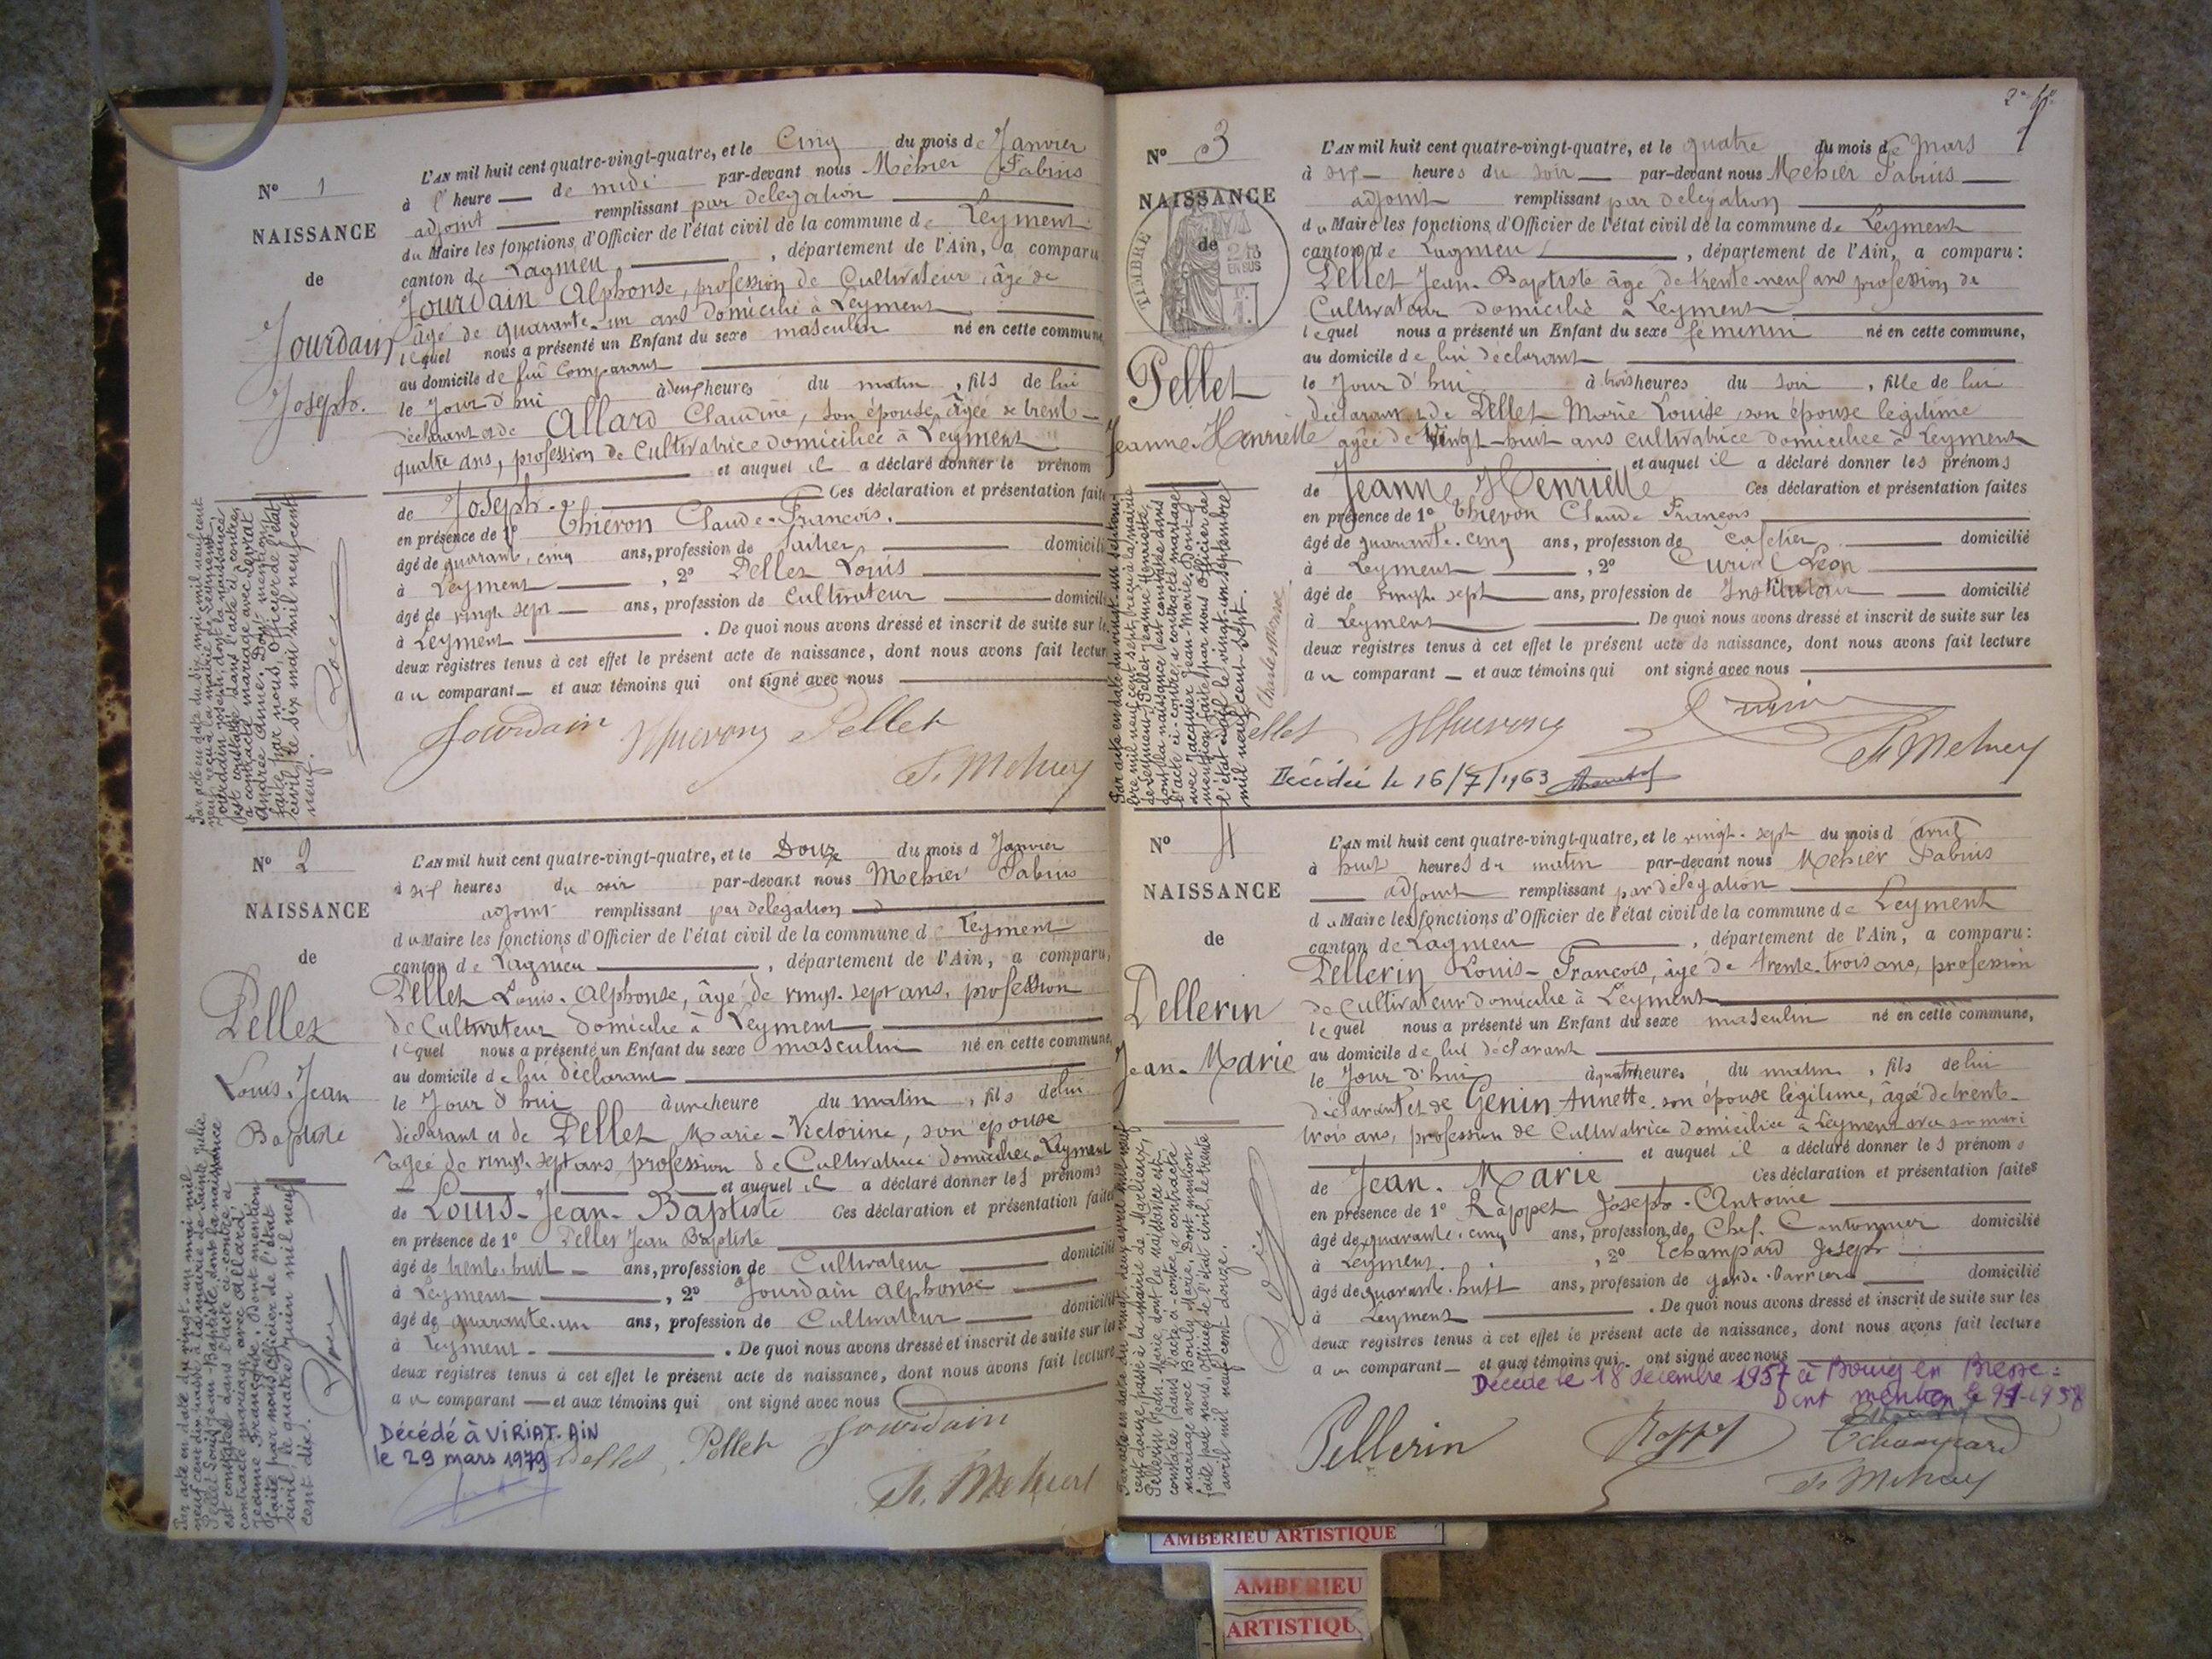 N° 1
NAISSANCE
de
Jourdain
Joseph.
L'AN mil huit cent quatre-vingt-quatre, et le Cinq du mois de Janvier
à l'heure de midi par-devant nous Méhier Fabius
adjoint remplissant par délégation
du Maire les fonctions d'Officier de l'état civil de la commune de Leyment
canton de Lagnieu, département de l'Ain, a comparu
Jourdain Alphonse, profession de Cultivateur, âgé de
âgé de quarante-un ans domicilié à Leyment
lequel nous a présenté un Enfant du sexe masculin né en cette commune
au domicile de lui Comparant
le Jour d'hui à deux heures du matin, fils de lui
déclarant et de Allard Claudine, son épouse, âgée de trente-
quatre ans, profession de Cultivatrice domiciliée à Leyment
et auquel il a déclaré donner le prénom
de Joseph. Ces déclaration et présentation faites
en présence de 1° Thievon Claude-François.
âgé de quarante-cinq ans, profession de domicilié
à Leyment, 2° Pellet Louis
âgé de vingt sept ans, profession de Cultivateur domicilié
à Leyment. De quoi nous avons dressé et inscrit de suite sur les
deux registres tenus à cet effet le présent acte de naissance, dont nous avons fait lecture
au comparant et aux témoins qui ont signé avec nous
Jourdain Thievon Pellet
F. Mehier
Par acte en date du six mai mil neuf cent
neuf reçu à la mairie de Leyment,
Jourdain Joseph, dont la naissance
est constatée dans l'acte ci-contre,
a contracté mariage avec Levrat
Andrée Anne. Dont mention
faite par nous, Officier de l'état
civil, le six mai mil neuf cent
neuf.
N° 2
NAISSANCE
de
Pellet
Louis, Jean
Baptiste
L'AN mil huit cent quatre-vingt-quatre, et le Douze du mois d Janvier
à six heures du soir par-devant nous Mehier Fabius
adjoint remplissant par délégation d
du Maire les fonctions d'Officier de l'état civil de la commune de Leyment
canton de Lagnieu, département de l'Ain, a comparu,
Pellet Louis-Alphonse, âgé de vingt-sept ans, profession
de Cultivateur domicilié à Leyment
lequel nous a présenté un Enfant du sexe masculin né en cette commune,
au domicile de lui déclarant
le Jour d'hui à une heure du matin, fils de lui
déclarant et de Pellet Marie-Victorine, son épouse
âgée de vingt-sept ans, profession de Cultivatrice domiciliée à Leyment
et auquel il a déclaré donner les prénoms
de Louis-Jean-Baptiste Ces déclaration et présentation faites
en présence de 1° Pellet Jean Baptiste
âgé de trente-huit ans, profession de Cultivateur domicilié
à Leyment, 2° Jourdain Alphonse
âgé de quarante-un ans, profession de Cultivateur domicilié
à Leyment. De quoi nous avons dressé et inscrit de suite sur les
deux registres tenus à cet effet le présent acte de naissance, dont nous avons fait lecture
au comparant et aux témoins qui ont signé avec nous
Décédé à VIRIAT. AIN
le 29 mars 1979
Pellet Pellet Jourdain
F. Mehier
Par acte en date du vingt-un mai mil
neuf cent dix passé à la mairie de Sainte Julie
Pellet Louis Jean Baptiste, dont la naissance
est constatée dans l'acte ci-contre, a
contracté mariage avec Allard
Jeanne Françoise. Dont mention
faite par nous Officier de l'état
civil, le quatre juin mil neuf
cent dix.
2e
N° 3
NAISSANCE
de
TIMBRE
EN SUS
Pellet
Jeanne-Henriette
L'AN mil huit cent quatre-vingt-quatre, et le quatre du mois de Mars
à six heures du soir par-devant nous Mehier Fabius
adjoint remplissant par délégation
du Maire les fonctions d'Officier de l'état civil de la commune de Leyment
canton de Lagnieu, département de l'Ain, a comparu :
Pellet Jean-Baptiste âgé de trente-neuf ans profession de
Cultivateur domicilié à Leyment
lequel nous a présenté un Enfant du sexe féminin né en cette commune,
au domicile de lui déclarant
le Jour d'hui à trois heures du soir, fille de lui
déclarant et de Pellet Marie Louise, son épouse légitime
âgée de vingt-huit ans cultivatrice domiciliée à Leyment
et auquel il a déclaré donner les prénoms
de Jeanne Henriette Ces déclaration et présentation faites
en présence de 1° Thievon Claude François
âgé de quarante-cinq ans, profession de Cafetier domicilié
à Leyment, 2° Curial Léon
âgé de vingt-sept ans, profession de Instituteur domicilié
à Leyment. De quoi nous avons dressé et inscrit de suite sur les
deux registres tenus à cet effet le présent acte de naissance, dont nous avons fait lecture
au comparant et aux témoins qui ont signé avec nous
Pellet Thievon Curial
F. Mehier
Décédée le 16/7/1963
Par acte en date du vingt-un septem-
bre mil neuf cent sept reçu à la mairie
de Leyment, Pellet Jeanne Henriette,
dont la naissance est constatée dans
l'acte ci-contre, a contracté mariage
avec Jacquier Jean-Marie. Dont
mention faite par nous Officier de
l'état civil le vingt-un septembre
mil neuf cent sept.
N° 4
NAISSANCE
de
Pellerin
Jean-Marie
L'AN mil huit cent quatre-vingt-quatre, et le vingt-sept du mois d avril
à huit heures du matin par-devant nous Mehier Fabius
adjoint remplissant par délégation
du Maire les fonctions d'Officier de l'état civil de la commune de Leyment
canton de Lagnieu, département de l'Ain, a comparu :
Pellerin Louis-François, âgé de trente-trois ans, profession
de cultivateur domicilié à Leyment
lequel nous a présenté un Enfant du sexe masculin né en cette commune,
au domicile de lui déclarant
le Jour d'hui à quatre heures du matin, fils de lui
déclarant et de Genin Annette, son épouse légitime, âgée de trente-
trois ans, profession de Cultivatrice domiciliée à Leyment avec son mari
et auquel il a déclaré donner les prénoms
de Jean-Marie Ces déclaration et présentation faites
en présence de 1° Rappet Joseph-Antoine
âgé de quarante-cinq ans, profession de Chef-Cantonnier domicilié
à Leyment, 2° Echampard Joseph
âgé de quarante-huit ans, profession de garde-barrière domicilié
à Leyment. De quoi nous avons dressé et inscrit de suite sur les
deux registres tenus à cet effet le présent acte de naissance, dont nous avons fait lecture
au comparant et aux témoins qui ont signé avec nous
Décédé le 18 décembre 1957 à Bourg en Bresse :
Dont mention le 9-1-1958
Pellerin Rappet Echampard
F. Mehier
Par acte en date du vingt-deux avril mil neuf
cent douze, passé à la mairie de Marlieux,
Pellerin Jean-Marie dont la naissance est
constatée dans l'acte ci-contre, a contracté
mariage avec Bourly Marie. Dont mention
faite par nous, Officier de l'état civil, le trente
avril mil neuf cent douze.
AMBERIEU ARTISTIQUE
AMBERIEU
ARTISTIQU